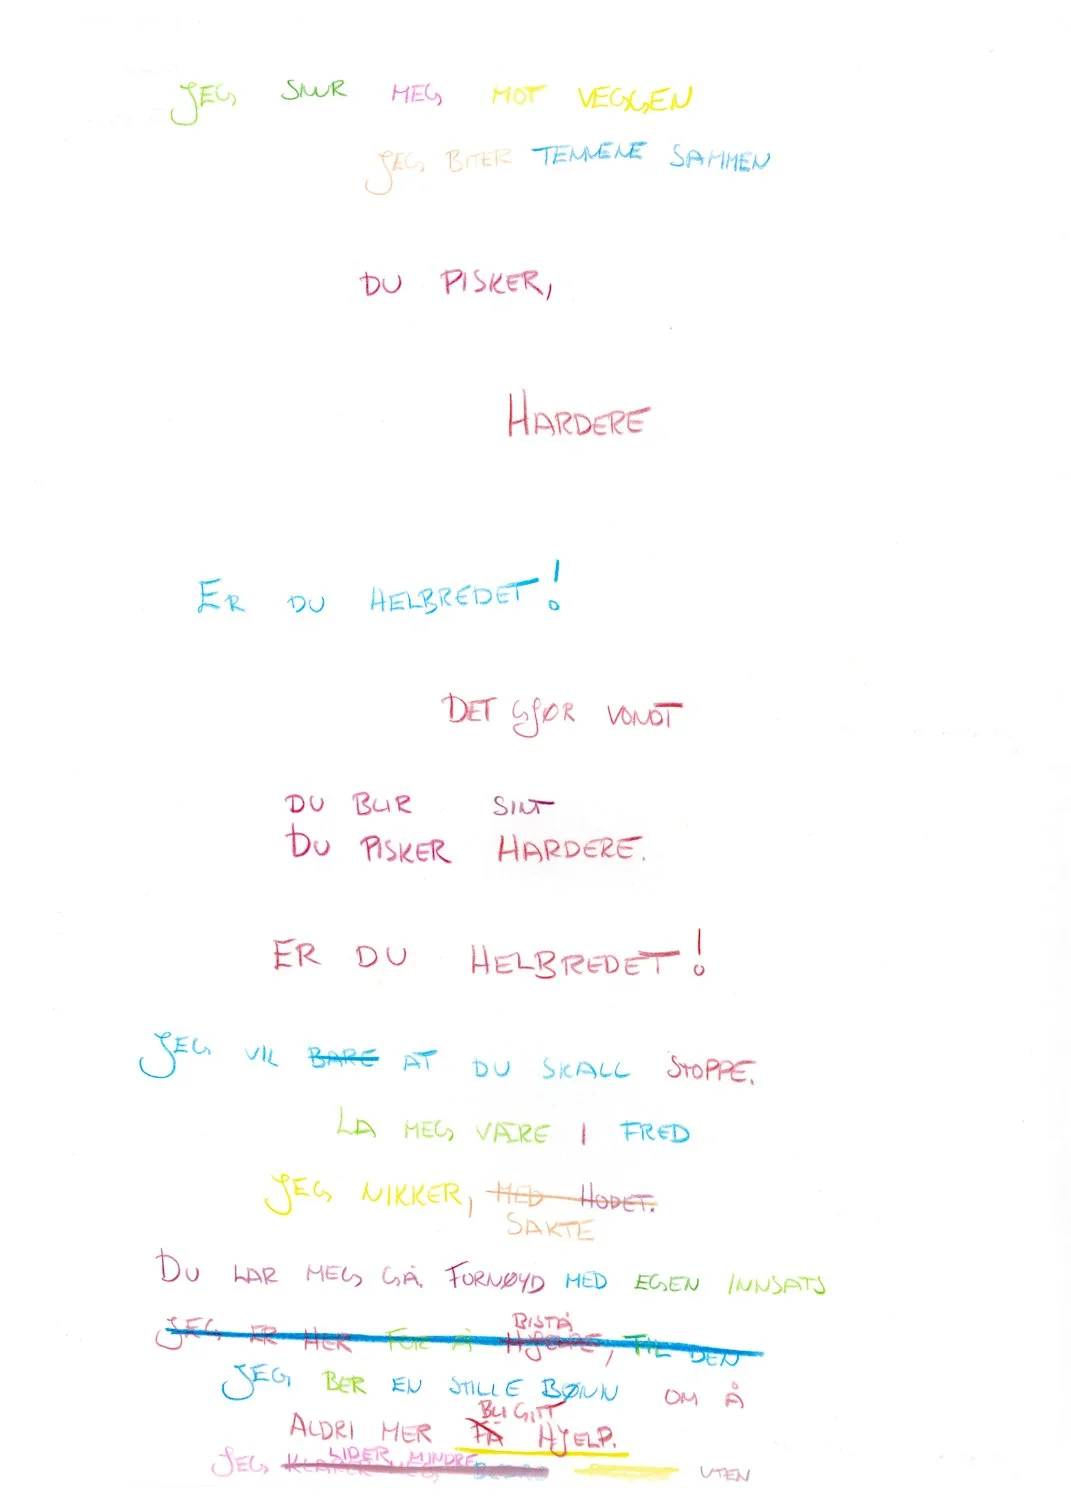 JEG SNUR MEG MOT VEGGEN
JEG BITER TENNENE SAMMEN
DU PISKER,
HARDERE
ER DU HELBREDET!
DET GJØR VONDT
DU BLIR SINT
DU PISKER HARDERE.
ER DU HELBREDET!
JEG VIL BARE AT DU SKALL STOPPE.
LA MEG VÆRE I FRED
JEG NIKKER, MED HODET.
SAKTE
DU LAR MEG GÅ. FORNØYD MED EGEN INNSATS
BISTÅ
JEG ER HER FOR Å HJELPE, TIL DEN
JEG BER EN STILLE BØNN OM Å
BLI GITT
ALDRI MER FÅ HJELP.
LIDER MINDRE
JEG KLARER MEG BEDRE UTEN